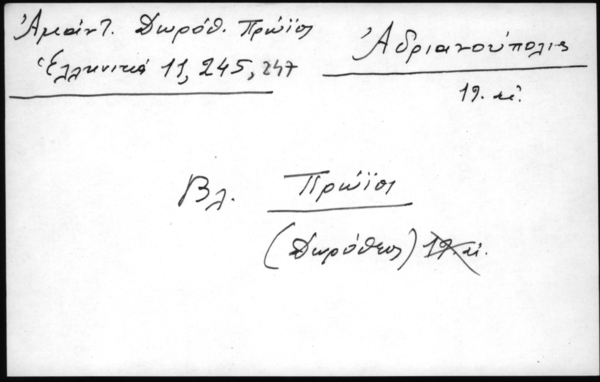 Ἀμάντ. Δωρόθ. Πρώϊος
Ἑλληνικά 11, 245, 247
Ἀδριανούπολις
19. αἰ.
Βλ. Πρώϊος
(Δωρόθεος) 19. αἰ.